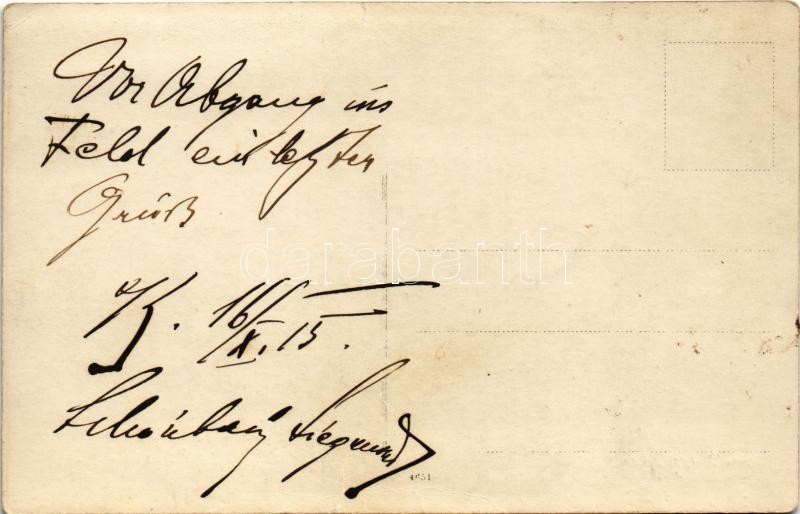 Vor Abgang ins
Feld ein letzter
Gruß
16/X. 15.
Siegmund
4651
darabanth